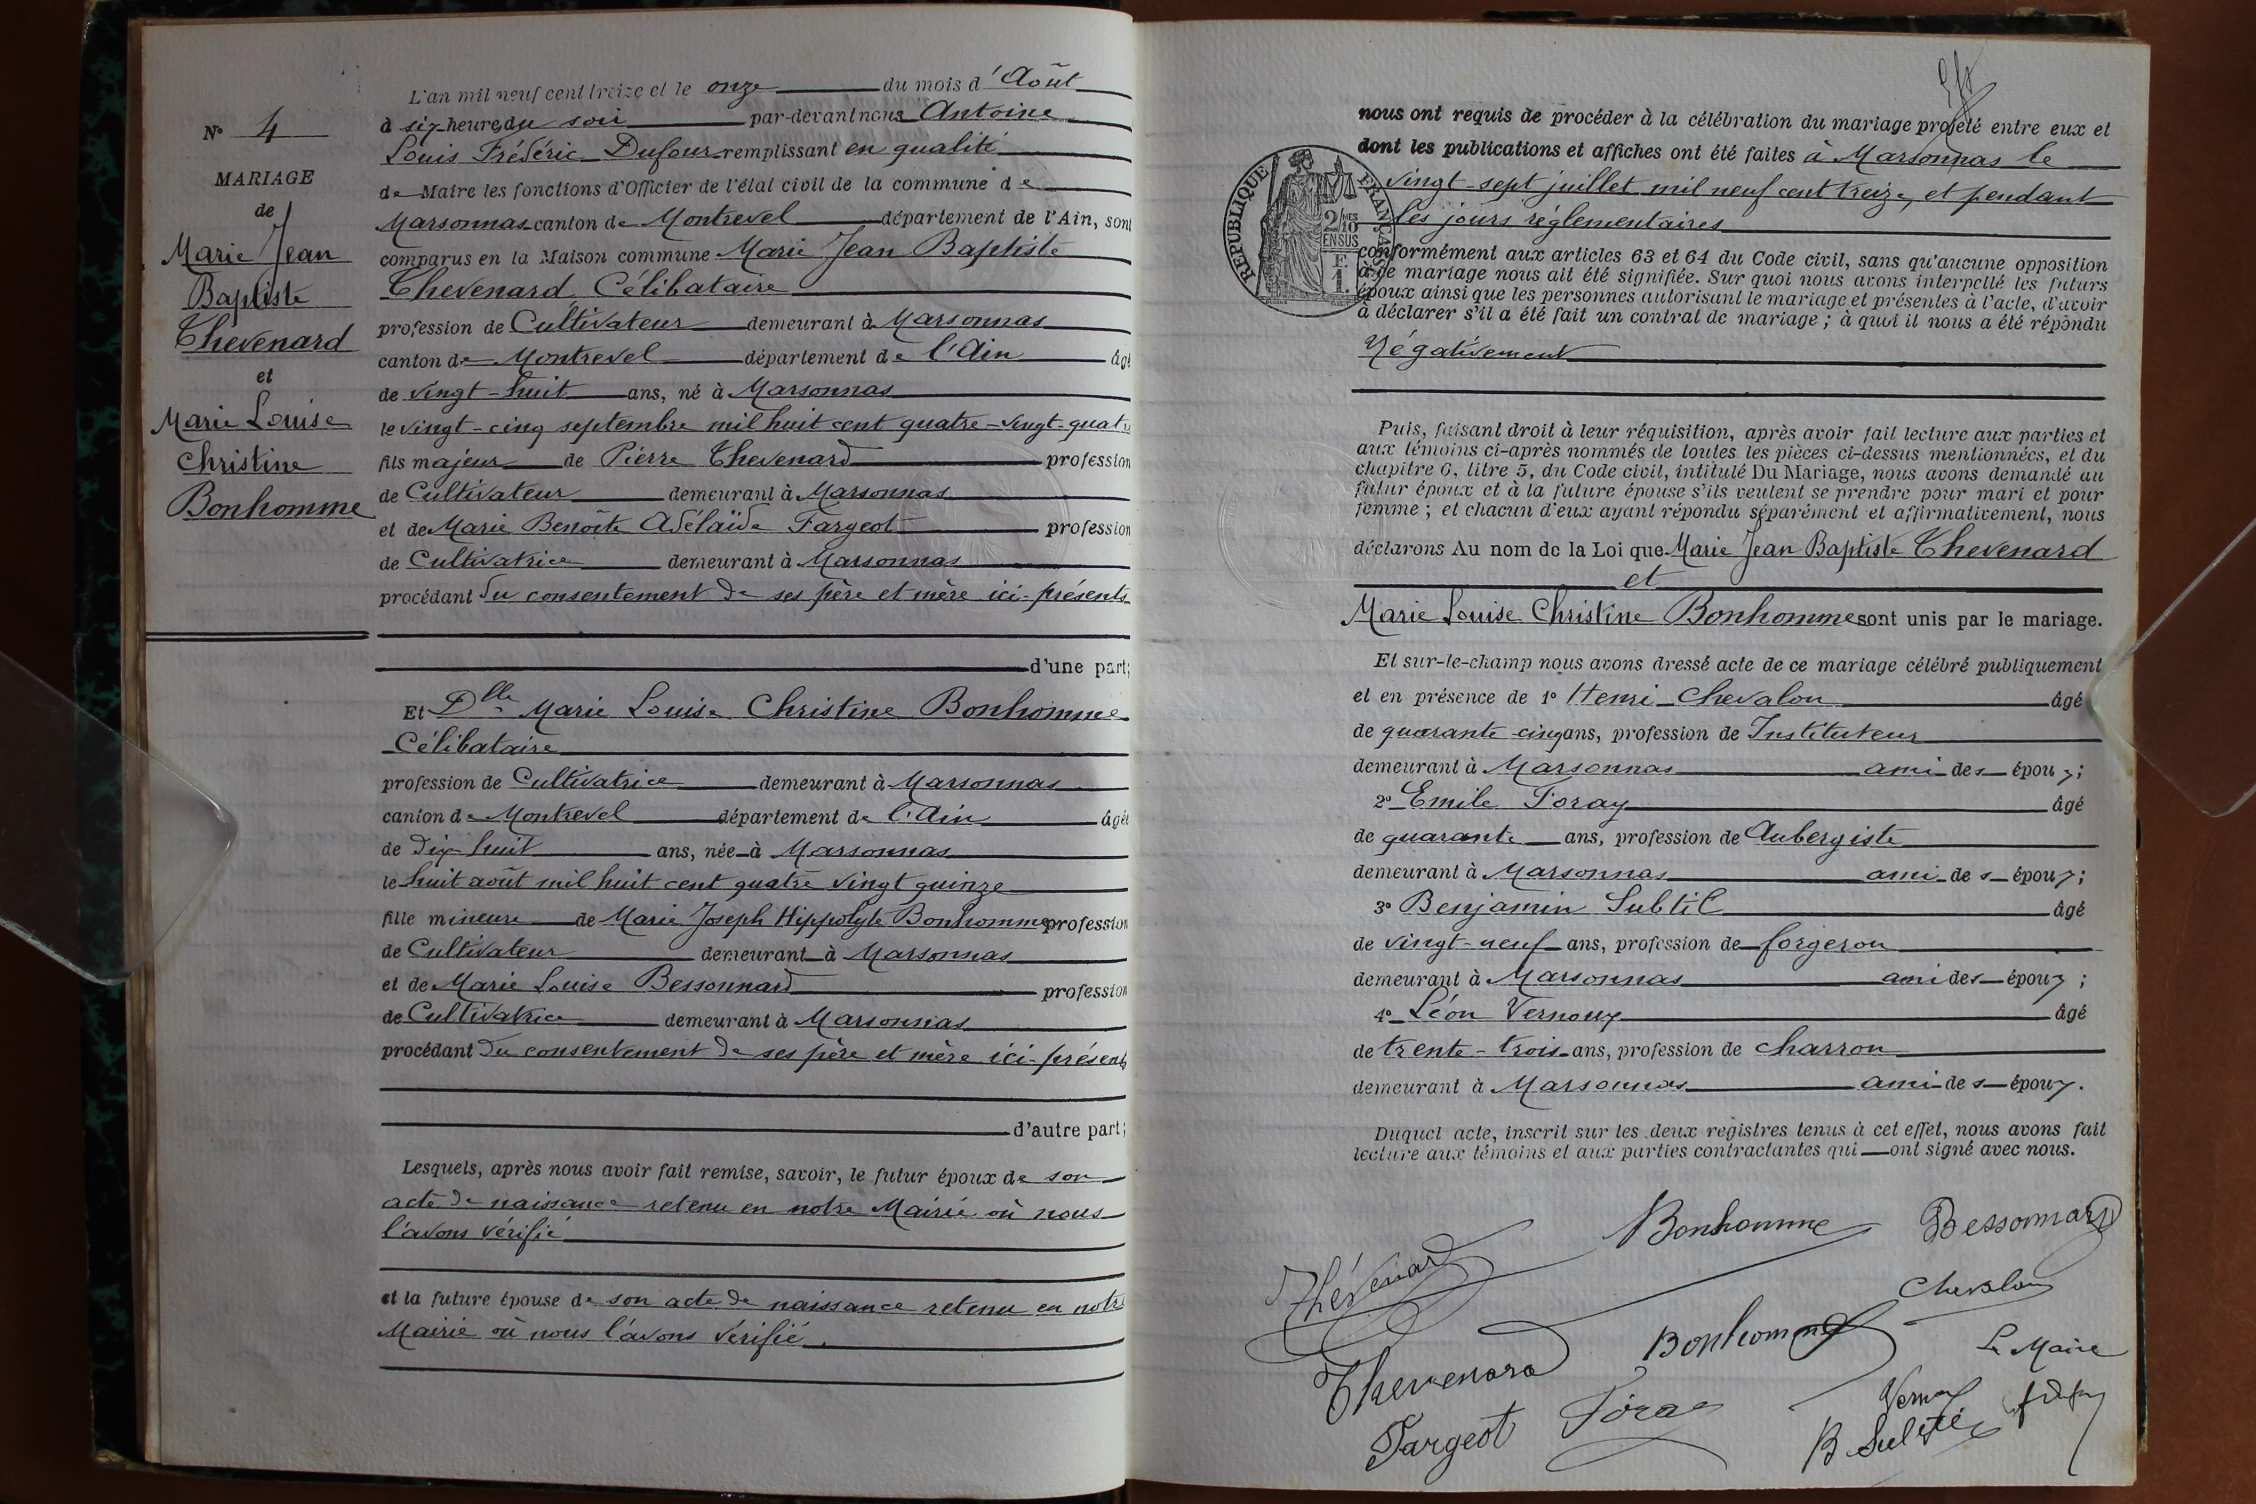 L'an mil neuf cent treize et le onze du mois d'Août
à six heures du soir par-devant nous Antoine
Louis Frédéric Dufour remplissant en qualité
de Maire les fonctions d'Officier de l'état civil de la commune de
Marsonnas canton de Montrevel département de l'Ain, sont
comparus en la Maison commune Marie Jean Baptiste
Thevenard Célibataire
profession de Cultivateur demeurant à Marsonnas
canton de Montrevel département de l'Ain âgé
de vingt-huit ans, né à Marsonnas
le vingt-cinq septembre mil huit cent quatre-vingt-quatre
fils majeur de Pierre Thevenard profession
de Cultivateur demeurant à Marsonnas
et de Marie Benoîte Adélaïde Fargeot profession
de Cultivatrice demeurant à Marsonnas
procédant du consentement de ses père et mère ici-présents
d'une part;
Et Dlle Marie Louise Christine Bonhomme
Célibataire
profession de Cultivatrice demeurant à Marsonnas
canton de Montrevel département de l'Ain âgée
de dix-huit ans, née à Marsonnas
le huit août mil huit cent quatre vingt quinze
fille mineure de Marie Joseph Hippolyte Bonhomme profession
de Cultivateur demeurant à Marsonnas
et de Marie Louise Bessonnard profession
de Cultivatrice demeurant à Marsonnas
procédant du consentement de ses père et mère ici-présents
d'autre part;
Lesquels, après nous avoir fait remise, savoir, le futur époux de son
acte de naissance retenu en notre Mairie où nous
l'avons vérifié
et la future épouse de son acte de naissance retenu en notre
Mairie où nous l'avons vérifié.
N° 4
MARIAGE
de
Marie Jean
Baptiste
Thevenard
et
Marie Louise
Christine
Bonhomme
nous ont requis de procéder à la célébration du mariage projeté entre eux et
dont les publications et affiches ont été faites à Marsonnas le
vingt-sept juillet mil neuf cent treize, et pendant
les jours réglementaires
conformément aux articles 63 et 64 du Code civil, sans qu'aucune opposition
à ce mariage nous ait été signifiée. Sur quoi nous avons interpellé les futurs
époux ainsi que les personnes autorisant le mariage et présentes à l'acte, d'avoir
à déclarer s'il a été fait un contrat de mariage; à quoi il nous a été répondu
Négativement
RÉPUBLIQUE FRANÇAISE
2/10MES
EN SUS
F
1.
Puis, faisant droit à leur réquisition, après avoir fait lecture aux parties et
aux témoins ci-après nommés de toutes les pièces ci-dessus mentionnées, et du
chapitre 6, titre 5, du Code civil, intitulé Du Mariage, nous avons demandé au
futur époux et à la future épouse s'ils veulent se prendre pour mari et pour
femme; et chacun d'eux ayant répondu séparément et affirmativement, nous
déclarons Au nom de la Loi que Marie Jean Baptiste Thevenard
et
Marie Louise Christine Bonhomme sont unis par le mariage.
Et sur-le-champ nous avons dressé acte de ce mariage célébré publiquement
et en présence de 1° Henri Chevalon âgé
de quarante-cinq ans, profession de Instituteur
demeurant à Marsonnas ami des époux;
2° Emile Foray âgé
de quarante ans, profession de Aubergiste
demeurant à Marsonnas ami des époux;
3° Benjamin Subtil âgé
de vingt-neuf ans, profession de forgeron
demeurant à Marsonnas ami des époux;
4° Léon Vernoux âgé
de trente-trois ans, profession de charron
demeurant à Marsonnas ami des époux.
Duquel acte, inscrit sur les deux registres tenus à cet effet, nous avons fait
lecture aux témoins et aux parties contractantes qui ont signé avec nous.
Thévenard Bonhomme Bessonnard
Chevalon
Thevenard Bonhomme Le Maire
Fargeot Foray